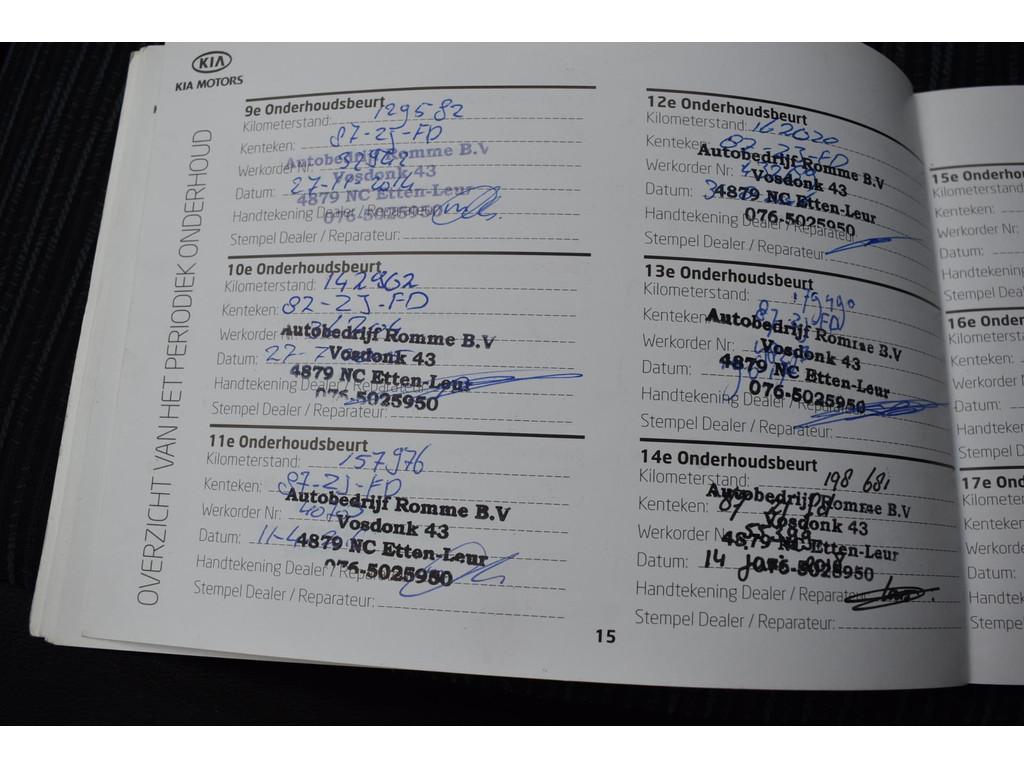 KIA
KIA MOTORS
OVERZICHT VAN HET PERIODIEK ONDERHOUD
9e Onderhoudsbeurt
Kilometerstand: 129582
Kenteken: 87-ZJ-FD
Werkorder Nr:
Autobedrijf Romme B.V
Vosdonk 43
Datum: 27-
4879 NC Etten-Leur
Handtekening Dealer / Reparateur:
076-5025950
Stempel Dealer / Reparateur:
10e Onderhoudsbeurt
Kilometerstand: 142962
Kenteken: 82-ZJ-FD
Werkorder Nr:
Autobedrijf Romme B.V
Datum: 22-7
Vosdonk 43
4879 NC Etten-Leur
Handtekening Dealer / Reparateur:
076-5025950
Stempel Dealer / Reparateur:
11e Onderhoudsbeurt
Kilometerstand: 157976
Kenteken: 87-ZJ-FD
Autobedrijf Romme B.V
Werkorder Nr:
Vosdonk 43
Datum: 11-4
4879 NC Etten-Leur
Handtekening Dealer / Reparateur:
076-5025950
Stempel Dealer / Reparateur:
12e Onderhoudsbeurt
Kilometerstand: 162020
Kenteken: 82-ZJ-FD
Autobedrijf Romme B.V
Werkorder Nr:
Vosdonk 43
Datum: 3
4879 NC Etten-Leur
Handtekening Dealer / Reparateur
076-5025950
Stempel Dealer / Reparateur:
13e Onderhoudsbeurt
Kilometerstand: 179490
Kenteken: 87-ZJ-FD
Autobedrijf Romme B.V
Werkorder Nr:
Vosdonk 43
Datum:
4879 NC Etten-Leur
076-5025950
Handtekening Dealer / Reparateur
Stempel Dealer / Reparateur:
14e Onderhoudsbeurt
Kilometerstand: 198 681
Autobedrijf Romme B.V
Kenteken: 87
Vosdonk 43
Werkorder Nr:
4879 NC Etten-Leur
Datum: 14
076-5025950
Handtekening Dealer / Reparateur
Stempel Dealer / Reparateur:
15
15e Onderhou
Kilometerstand
Kenteken:
Werkorder Nr:
Datum:
Handtekening
Stempel Deal
16e Onder
Kilometerst
Kenteken:
Werkorder
Datum:
Handteker
Stempel D
17e Ond
Kilometer
Kenteken
Werkorde
Datum:
Handtek
Stempe